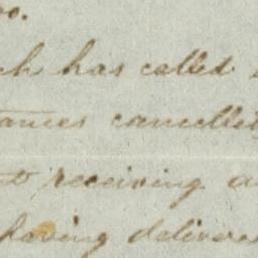 oo.
ch has called
ances cancelled
receiving a
having delivered